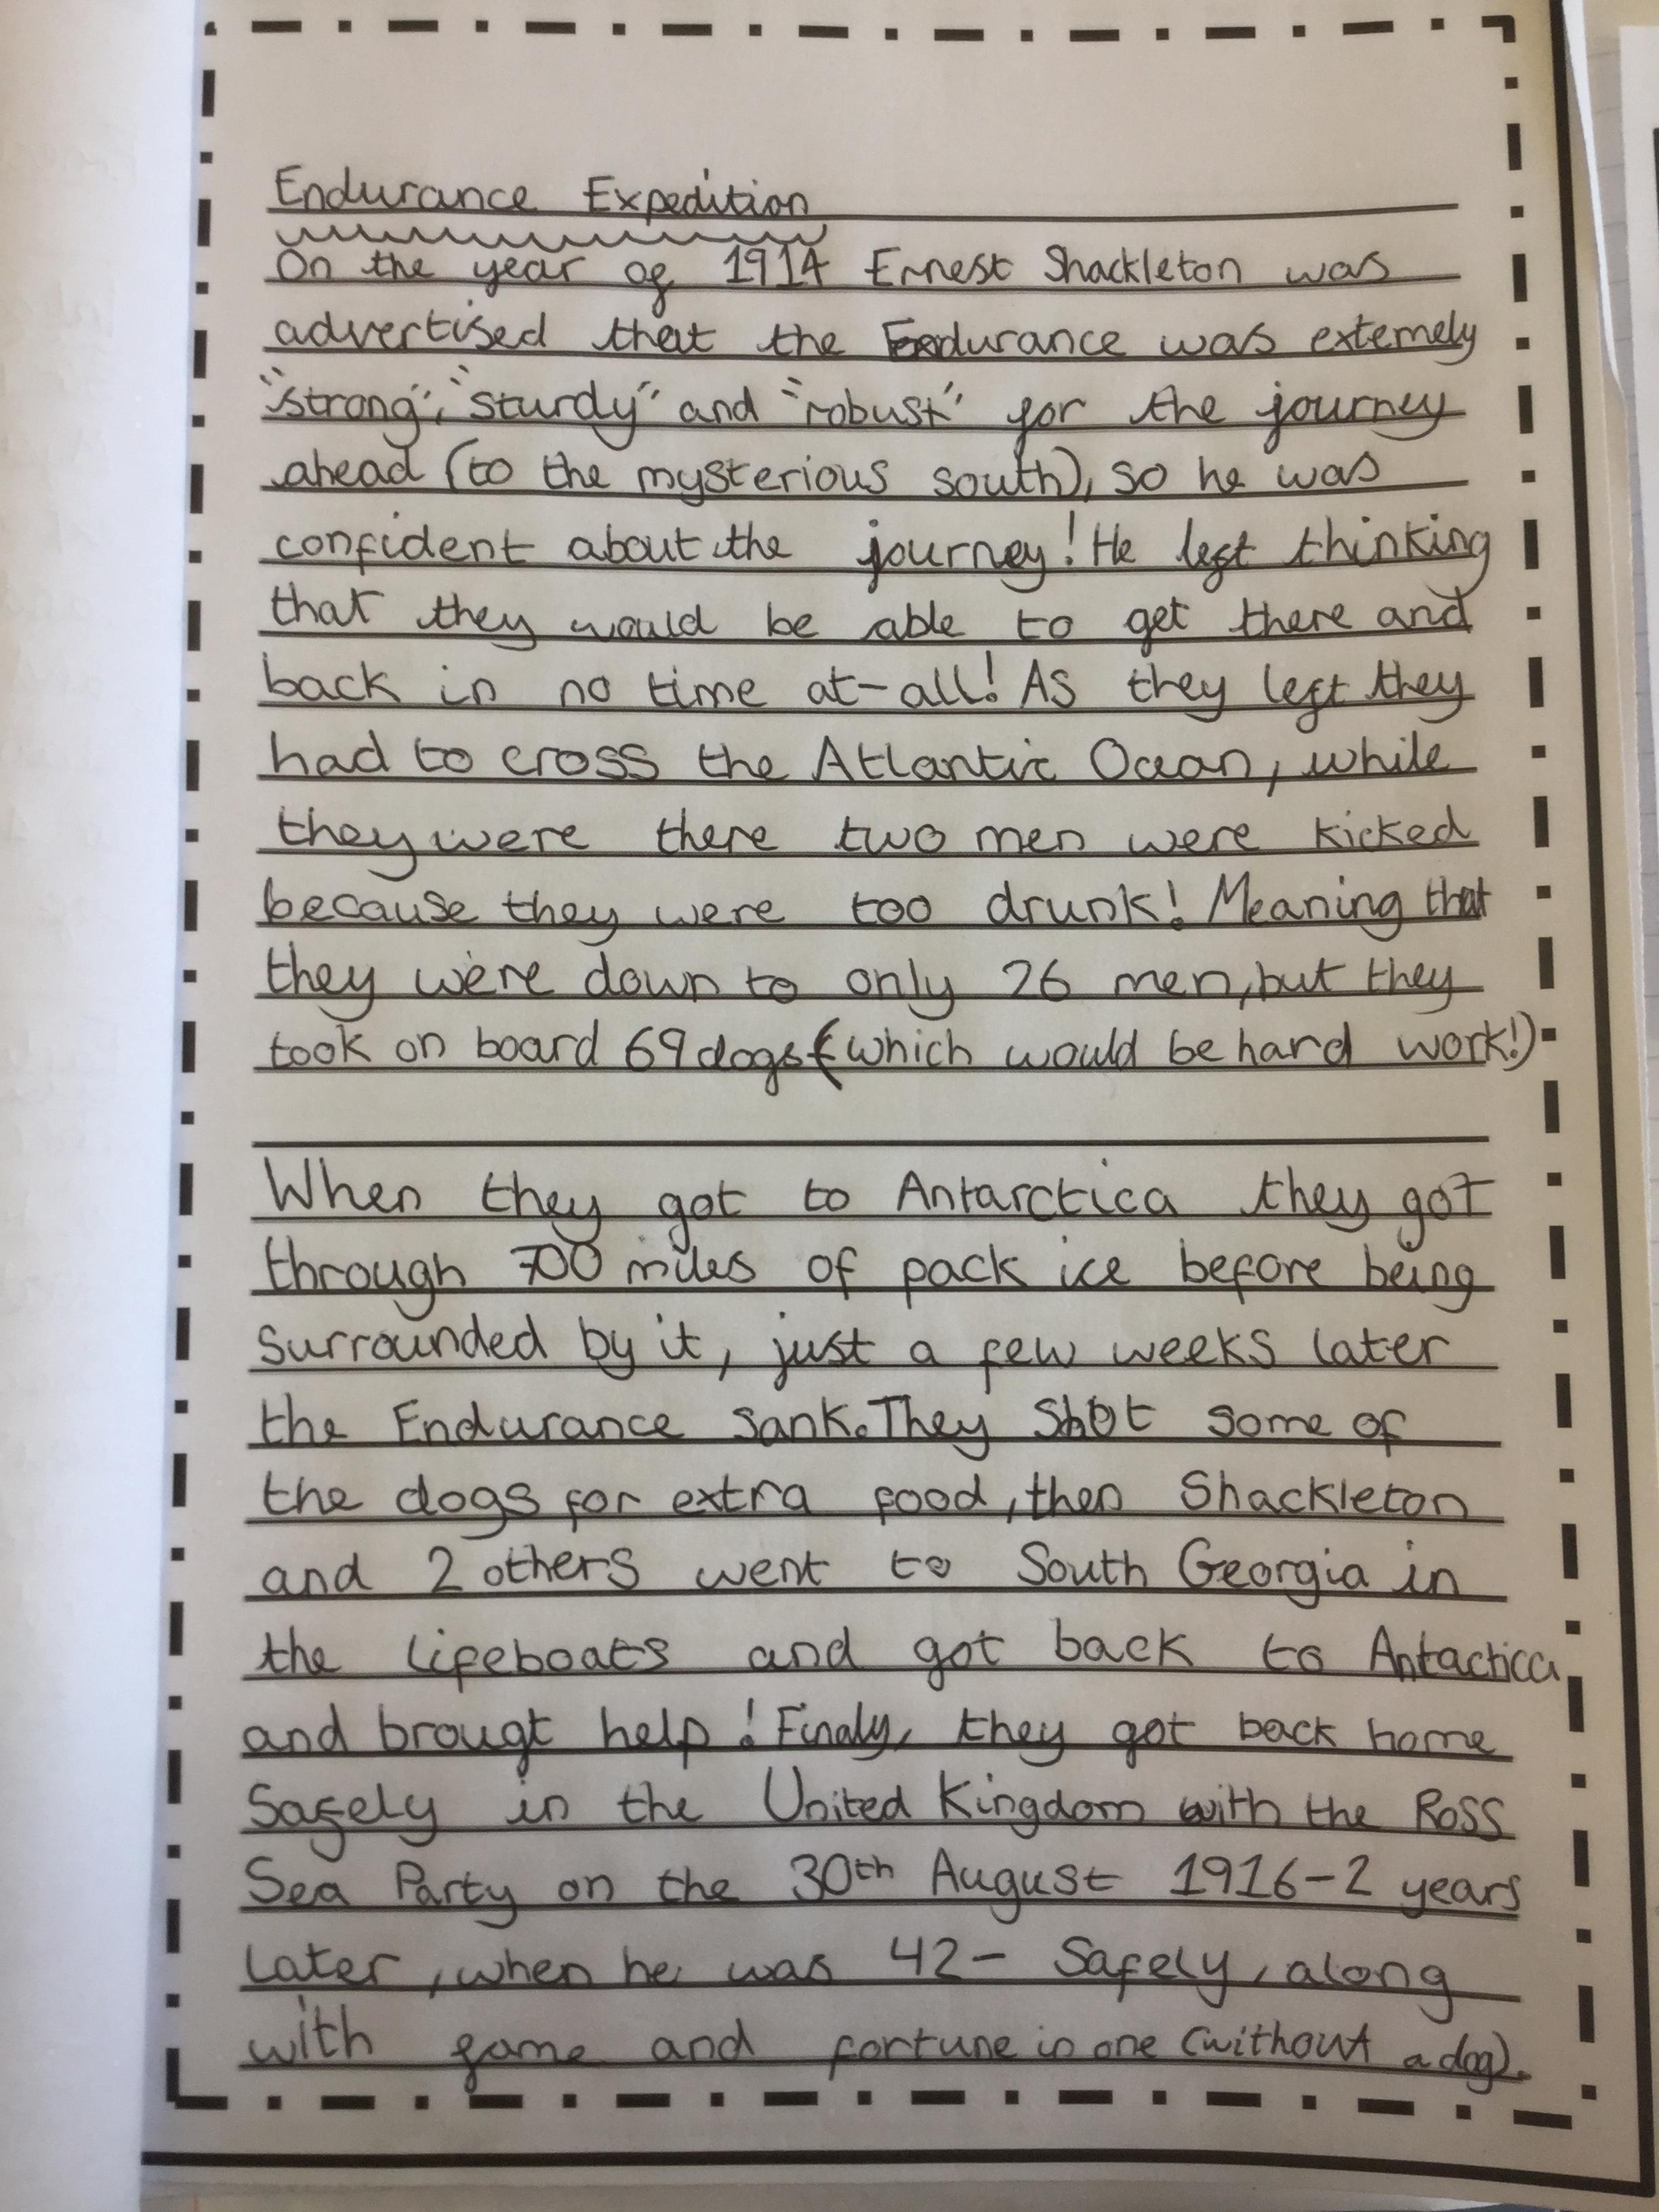 Endurance Expedition
On the year of 1914 Ernest Shackleton was
advertised that the Endurance was extemely
"strong", "sturdy" and "robust" for the journey
ahead (to the mysterious south), so he was
confident about the journey! He left thinking
that they would be able to get there and
back in no time at-all! As they left they
had to cross the Atlantic Ocean, while
they were there two men were kicked
because they were too drunk! Meaning that
they were down to only 26 men, but they
took on board 69 dogs (which would be hard work!)
When they got to Antarctica they got
through 700 miles of pack ice before being
surrounded by it, just a few weeks later
the Endurance sank. They shot some of
the dogs for extra food, then Shackleton
and 2 others went to South Georgia in
the lifeboats and got back to Antactica
and brougt help! Finaly, they got back home
Safely in the United Kingdom with the Ross
Sea Party on the 30th August 1916-2 years
later, when he was 42- Safely, along
with fame and fortune in one (without a dog).